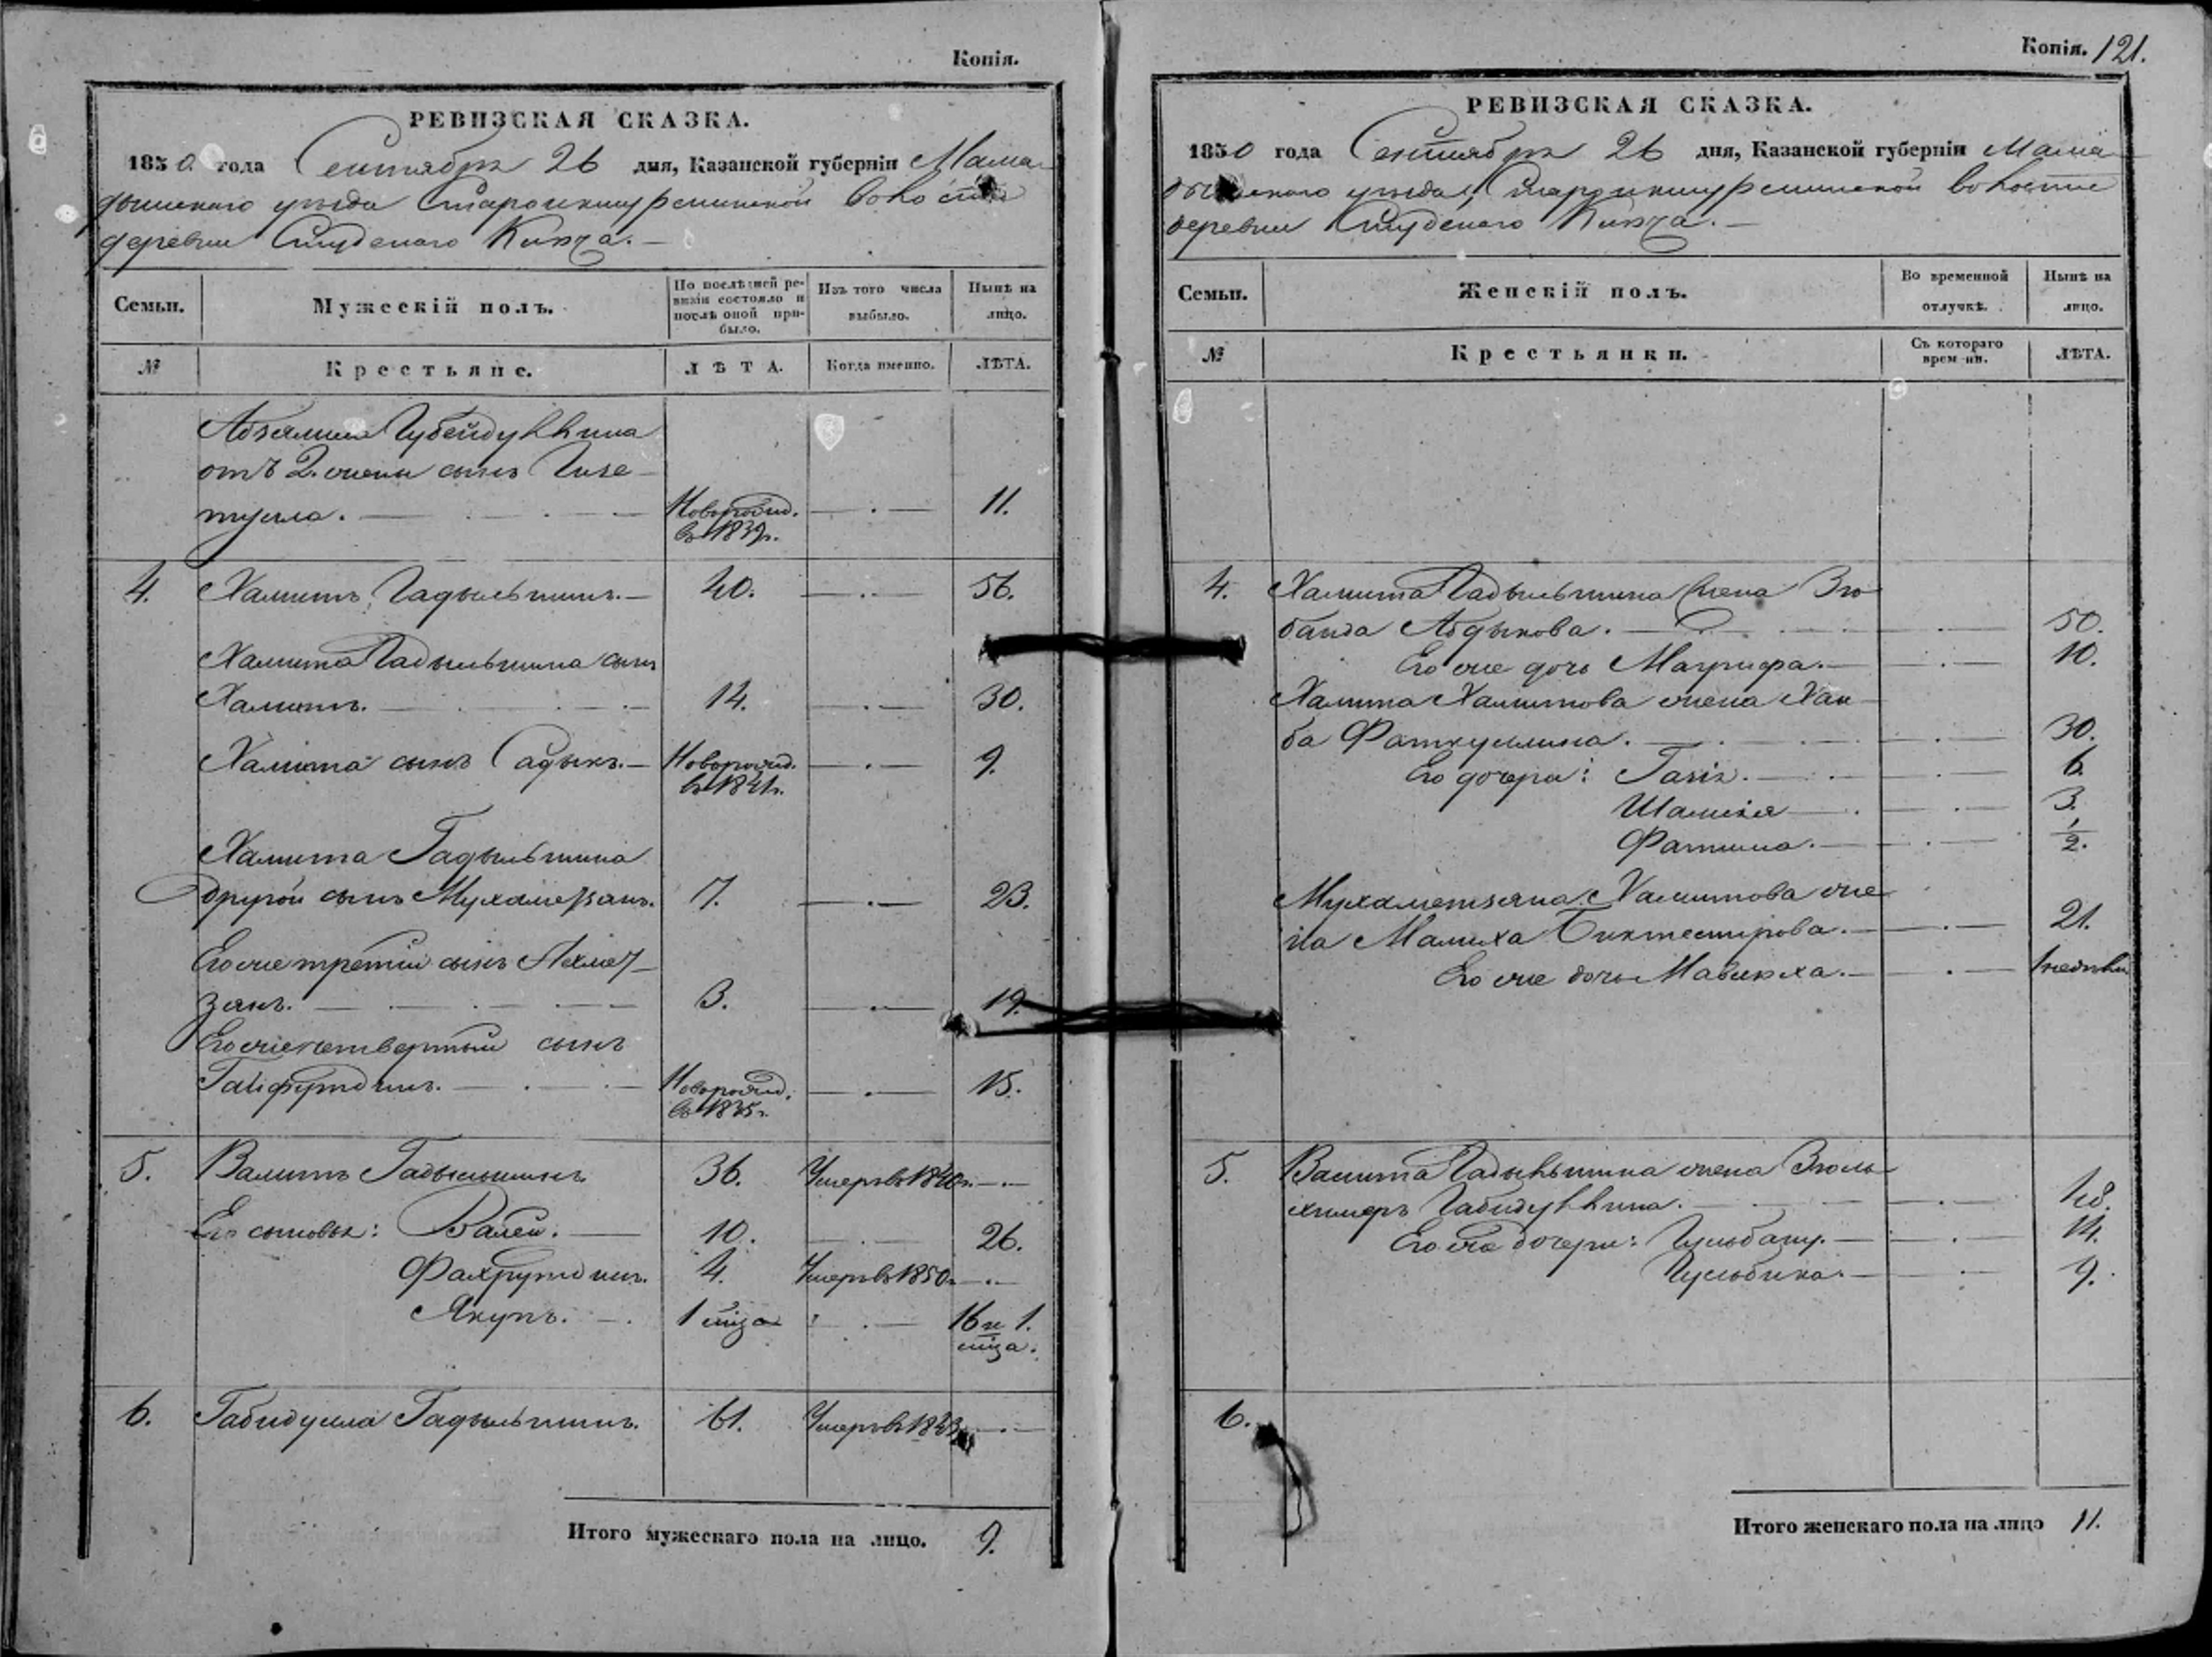 Копія.
РЕВИЗСКАЯ СКАЗКА.
1850 года Сентября 26 дня, Казанской губерніи Мама-
дышскаго уѣзда Староикшурминской волости
деревни Студенаго Ключа.
Семьи. Мужескій полъ. По послѣдней ре-визіи состояло и послѣ оной при-было. Изъ того числа выбыло. Нынѣ на лицо.
№ Крестьяне. ЛѢТА. Когда именно. ЛѢТА.
Абзялила Губейдуллина
отъ 2. жены сынъ Гизе-
тулла. Новорожд. въ 1839г. 11.
4. Хамитъ Гадыльшинъ. 40. 56.
Хамита Гадыльшина сынъ
Халитъ. 14. 30.
Халита сынъ Садыкъ. Новорожд. въ 1841г. 9.
Хамита Гадыльшина
другой сынъ Мухаметзянъ. 7. 23.
Его же третій сынъ Ахмет-
зянъ. 3. 19.
Его же четвертый сынъ
Гайфутдинъ. Новорожд. въ 1835г. 15.
5. Валитъ Гадыльшинъ 36. Умеръ въ 1840г.
Его сыновья: Валей. 10. 26.
Фахрутдинъ. 4. Умеръ въ 1850г.
Якупъ. 1 мѣс. 16 и 1. мѣс.
6. Габидулла Гадыльшинъ. 61. Умеръ въ 1843
Итого мужескаго пола на лицо. 9.
Копія. 121.
РЕВИЗСКАЯ СКАЗКА.
1850 года Сентября 26 дня, Казанской губерніи Мама-
дышскаго уѣзда, Староикшурминской волости
деревни Студенаго Ключа.
Семьи. Женскій полъ. Во временной отлучкѣ. Нынѣ на лицо.
№ Крестьянки. Съ котораго времени. ЛѢТА.
4. Хамита Гадыльшина жена Зю-
банда Абдыкова. 50.
Его же дочь Магрифа. 10.
Халита Хамитова жена Хаи-
ба Фаткуллина. 30.
Его дочери: Газія. 6.
Шамсія 3.
Фатима. 1/2.
Мухаметзяна Хамитова же-
на Малиха Биктемирова. 21.
Его же дочь Мавлюха. 1 недѣли
5. Валита Гадыльшина жена Зюль-
химеръ Габидуллина. 48.
Его же дочери: Гульбану. 14.
Гульбика. 9.
6.
Итого женскаго пола на лицо 11.